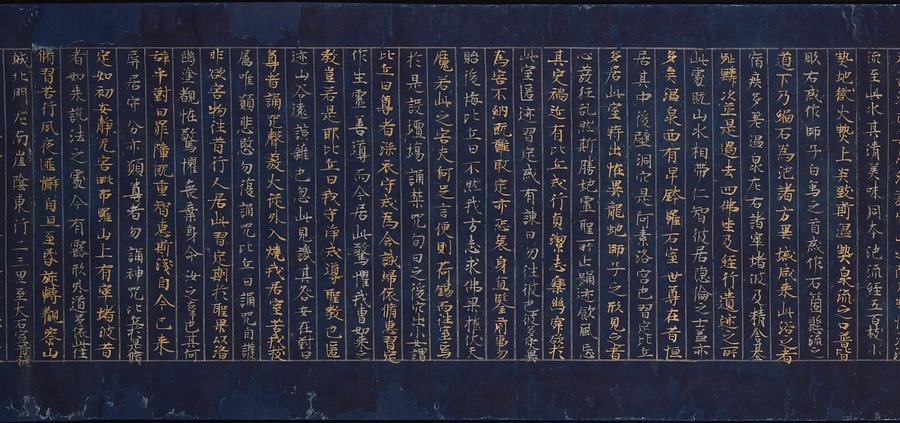 流至此水其清美味同本池流經五百枝小
熱地獄火熱上炎致斯温熱泉流之口並皆
彫石或作師子白象之首或作石筒懸流之
道下乃編石為池諸方異域咸来此浴浴者
宿疾多差温泉左右諸窣堵波及精舍基
趾鱗次並是過去四佛坐及經行遺迹之所
此處既山水相帶仁智攸居隱淪之士蓋亦
多矣温泉西有卑鉢羅石室世尊在昔恒
居其中後壁洞穴是阿素洛宮也習定比丘
多居此室時出恠異龍蛇師子之形見之者
心發狂乱然斯勝地靈聖所止蹈迹欽風忘
其灾禍近有比丘戒行貞潔志樂幽寂欲於
此室匿迹習定或有諫曰勿往彼也彼多灾異
為害不少既難取定亦恐喪身宜鑒前事勿
貽後悔比丘曰不然我方志求佛果摧伏天
魔若此之害夫何足言便則荷錫而往室焉
於是設壇場誦禁呪旬日之後穴出少女謂
比丘曰尊者染衣守戒為含識歸依脩惠習定
作生靈善導而今居此驚懼我曹如来之
教豈若是耶比丘曰我守淨戒遵聖教也匿
迹山谷遠諠雜也忽此見譏其咎安在對曰
尊者誦呪聲發火從外入燒我居室苦我枝
屬唯願悲愍勿復誦呪比丘曰誦呪自護
非欲害物往昔行人居此習定期於聖果以洛
幽塗覩恠驚懼無棄身命汝之辜也其何
辞乎對曰罪障既重智惠斯淺自今已来
屏居守分亦願尊者勿誦神呪比丘於是脩
定如初安靜无害毗布羅山上有窣堵波昔
者如来說法之處今有露形外道多依此住
脩習苦行夙夜匪懈自旦至昏旋轉觀察山
城北門左南崖陰東行二三里至大石室